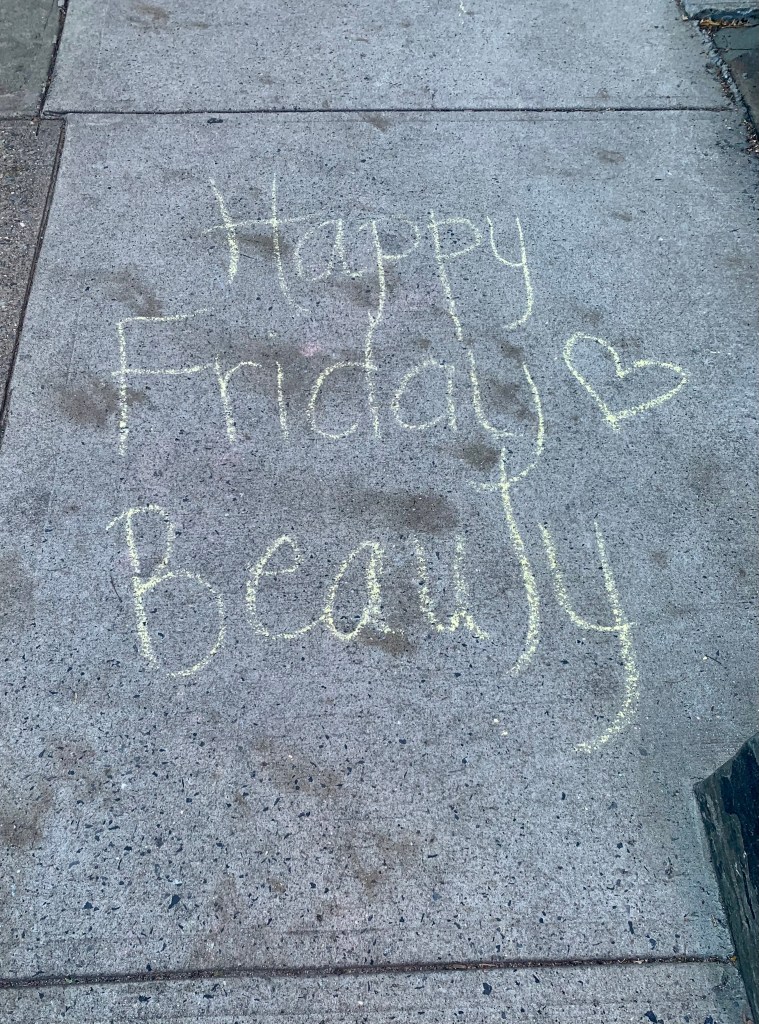 Happy
Friday
Beauty